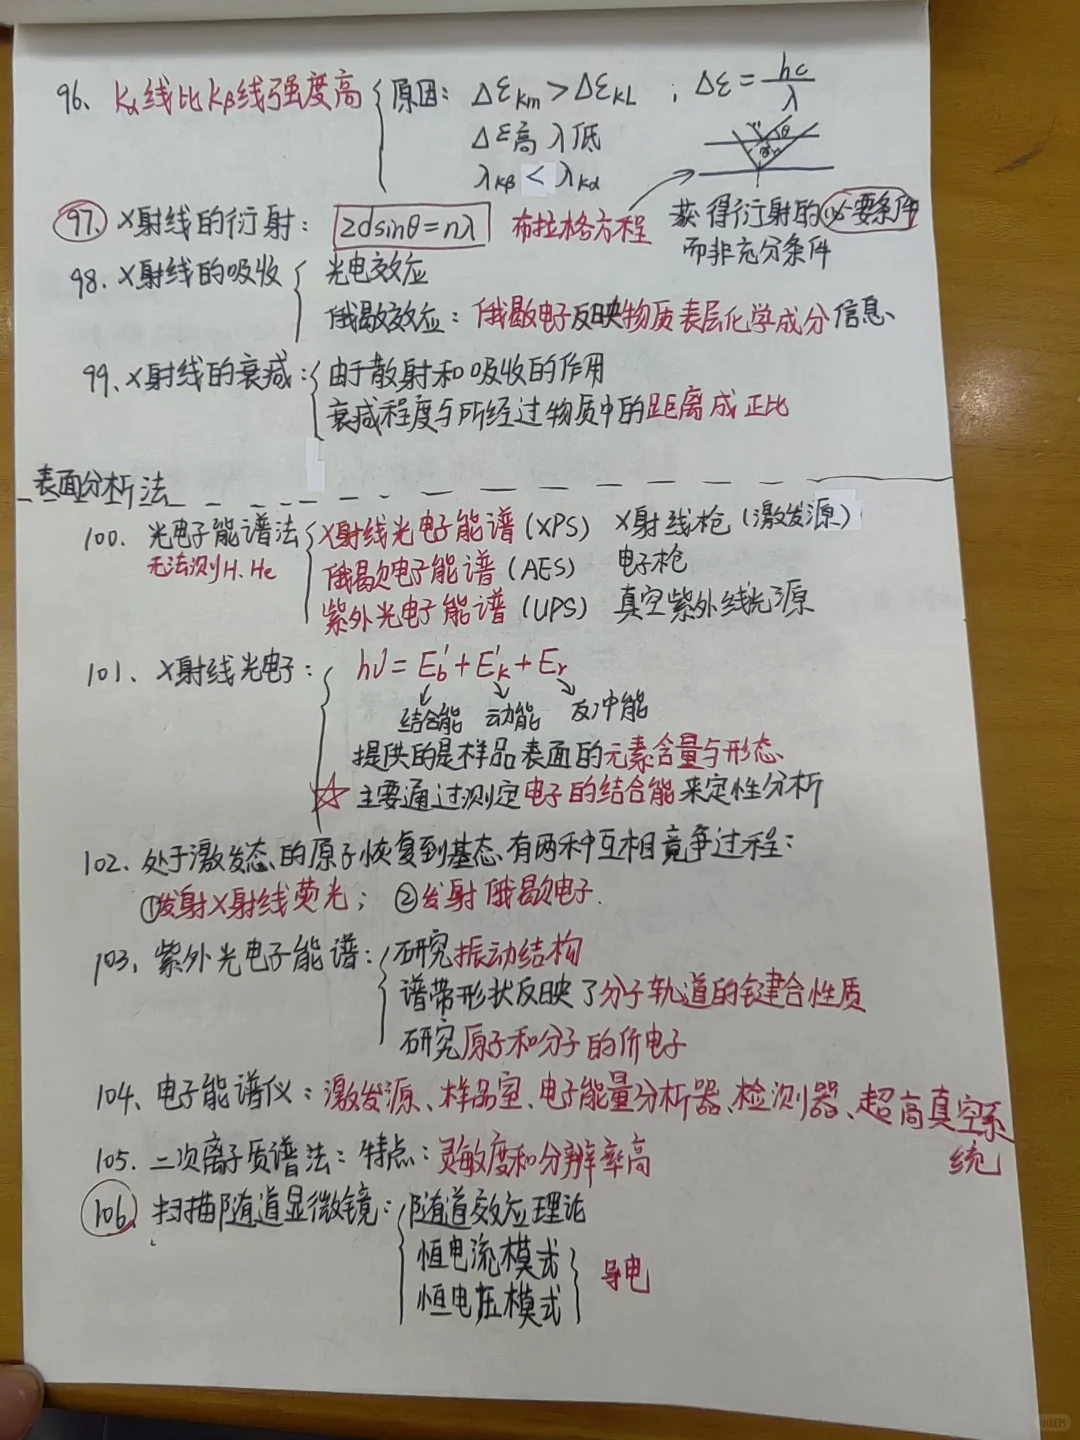 96、Kα线比Kβ线强度高 原因：ΔεKm > ΔεKL ；Δε = hc/λ
Δε高 λ低
λKβ < λKα
97、X射线的衍射：2dsinθ=nλ 布拉格方程 获得衍射的必要条件
而非充分条件
98、X射线的吸收 光电效应
俄歇效应：俄歇电子反映物质表层化学成分信息、
99、X射线的衰减：由于散射和吸收的作用
衰减程度与所经过物质中的距离成正比
表面分析法
100、光电子能谱法 X射线光电子能谱（XPS） X射线枪（激发源）
无法测H、He 俄歇电子能谱（AES） 电子枪
紫外光电子能谱（UPS） 真空紫外线光源
101、X射线光电子：hν = Eb' + Ek' + Er
结合能 动能 反冲能
提供的是样品表面的元素含量与形态、
☆ 主要通过测定电子的结合能来定性分析
102、处于激发态的原子恢复到基态有两种互相竞争过程：
①发射X射线荧光； ②发射俄歇电子.
103、紫外光电子能谱：研究振动结构
谱带形状反映了分子轨道的键合性质
研究原子和分子的价电子
104、电子能谱仪：激发源、样品室、电子能量分析器、检测器、超高真空系
统
105、二次离子质谱法：特点：灵敏度和分辨率高
106、扫描隧道显微镜：隧道效应理论
恒电流模式
恒电压模式
导电